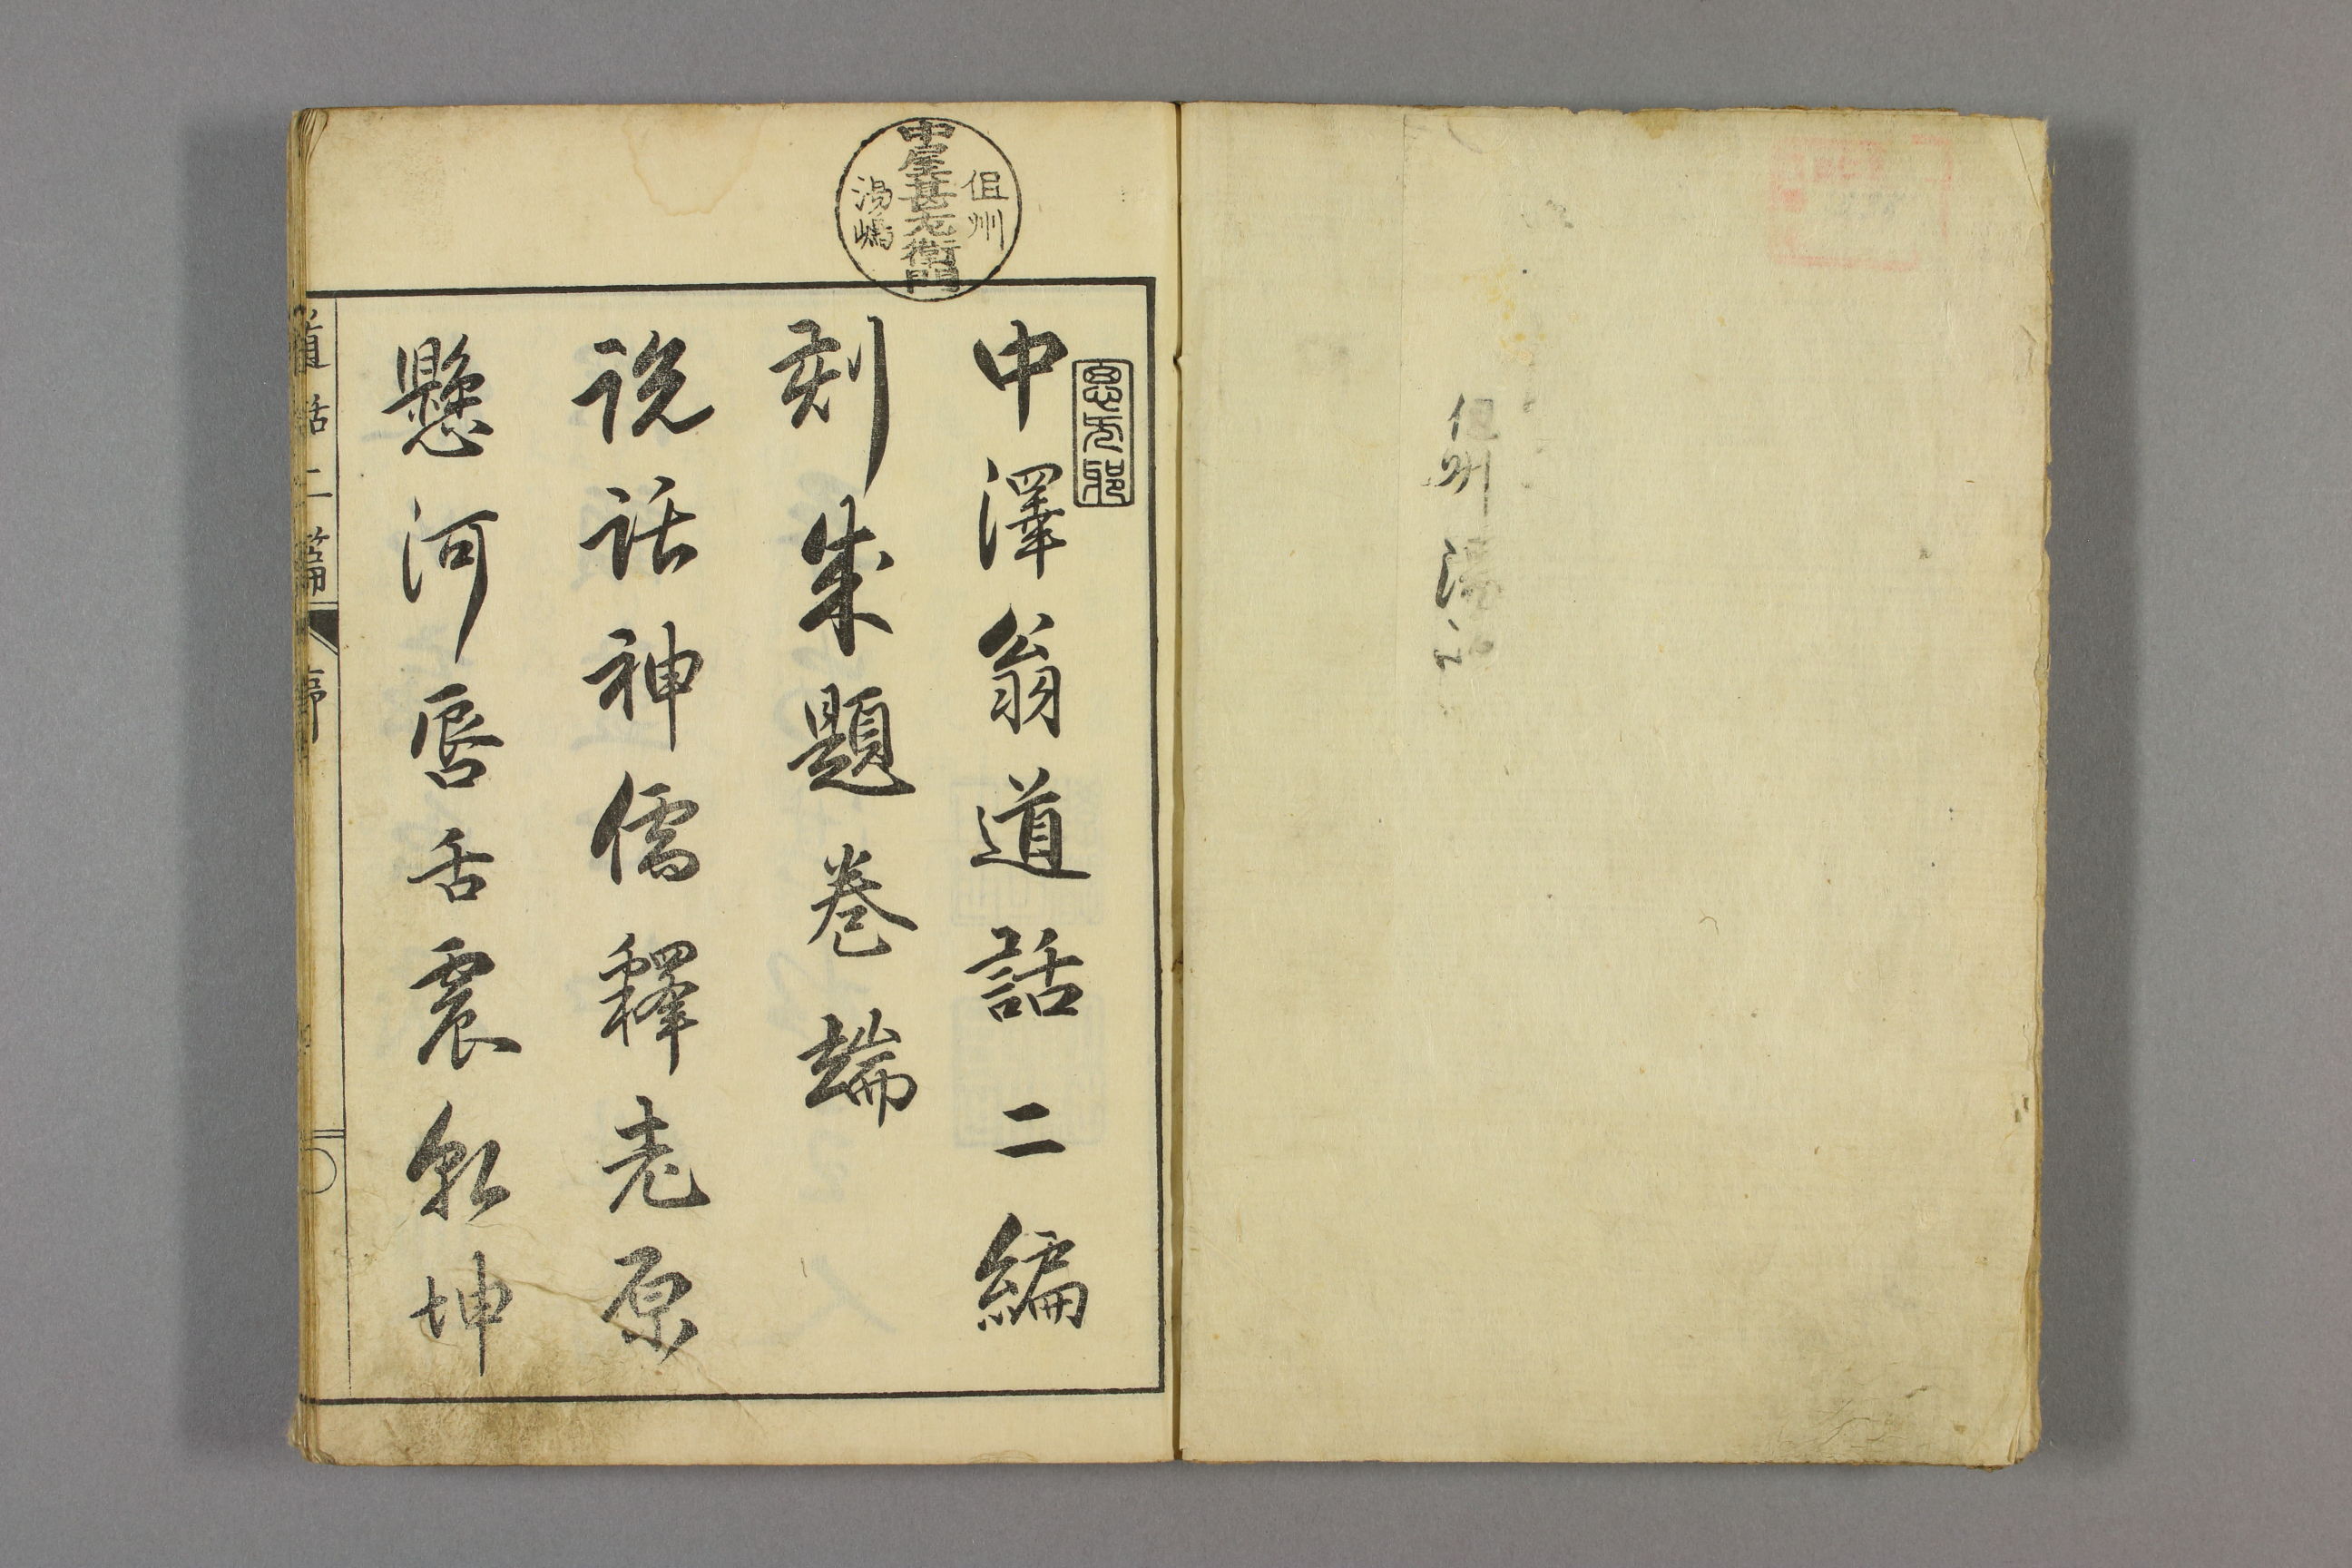 但州 湯
但州
中屋甚左衛門
湯嶋
中澤翁道話二編
刻成題巻端
説話神儒釋老原
懸河唇舌震乾坤
道話二篇 序